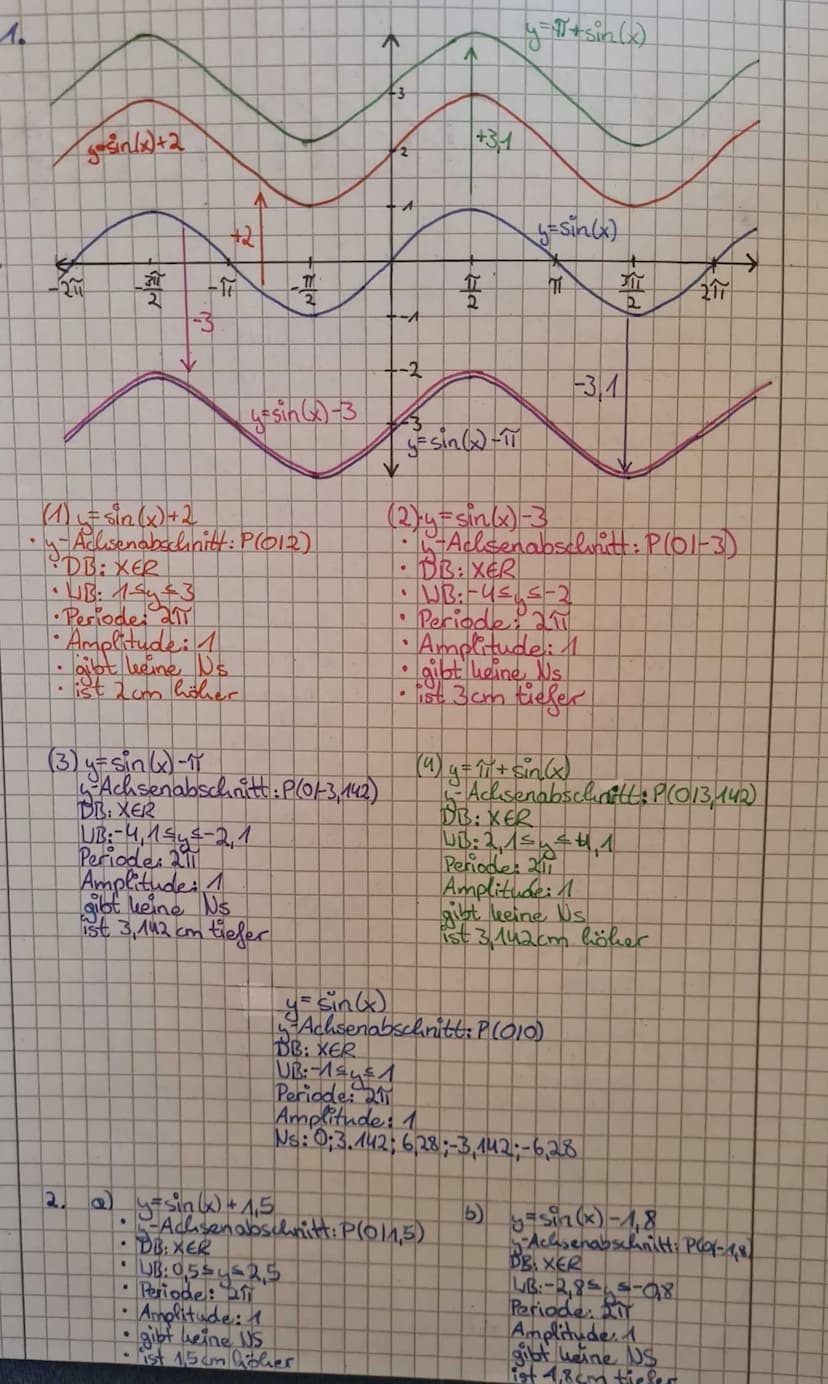 1.
y=π+sin(x)
3
y=sin(x)+2
2
+3,1
1
+2
y=sin(x)
-2π
-3π/2
-π
-π/2
π/2
π
3π/2
2π
-3
-1
-2
-3,1
y=sin(x)-3
-3
y=sin(x)-π
(1) y=sin(x)+2
· y-Achsenabschnitt: P(0|2)
· DB: X∈R
· WB: 1≤y≤3
· Periode: 2π
· Amplitude: 1
· gibt keine Ns
· ist 2cm höher
(2) y=sin(x)-3
· y-Achsenabschnitt: P(0|-3)
· DB: X∈R
· WB: -4≤y≤-2
· Periode: 2π
· Amplitude: 1
· gibt keine Ns
· ist 3cm tiefer
(3) y=sin(x)-π
y-Achsenabschnitt: P(0|-3,142)
DB: X∈R
WB: -4,1≤y≤-2,1
Periode: 2π
Amplitude: 1
gibt keine Ns
ist 3,142cm tiefer
(4) y=π+sin(x)
y-Achsenabschnitt: P(0|3,142)
DB: X∈R
WB: 2,1≤y≤4,1
Periode: 2π
Amplitude: 1
gibt keine Ns
ist 3,142cm höher
y=sin(x)
y-Achsenabschnitt: P(0|0)
DB: X∈R
WB: -1≤y≤1
Periode: 2π
Amplitude: 1
Ns: 0; 3.142; 6,28; -3,142; -6,28
2. a) y=sin(x)+1,5
· y-Achsenabschnitt: P(0|1,5)
· DB: X∈R
· WB: 0,5≤y≤2,5
· Periode: 2π
· Amplitude: 1
· gibt keine NS
· ist 1,5cm höher
b) y=sin(x)-1,8
y-Achsenabschnitt: P(0|-1,8)
DB: X∈R
WB: -2,8≤y≤-0,8
Periode: 2π
Amplitude: 1
gibt keine NS
ist 1,8cm tiefer